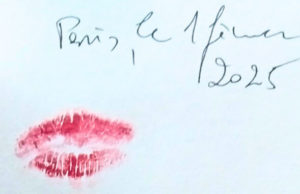 Paris, le 1 février
2025